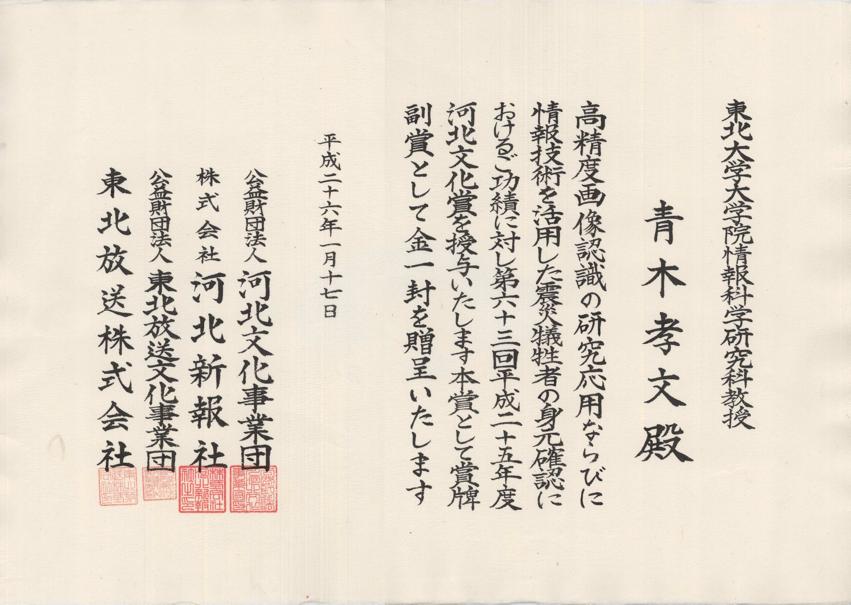 東北大学大学院情報科学研究科教授
青木孝文殿
高精度画像認識の研究応用ならびに
情報技術を活用した震災犠牲者の身元確認に
おけるご功績に対し第六十三回平成二十五年度
河北文化賞を授与いたします本賞として賞牌
副賞として金一封を贈呈いたします
平成二十六年一月十七日
公益財団法人河北文化事業団
株式会社河北新報社
公益財団法人東北放送文化事業団
東北放送株式会社